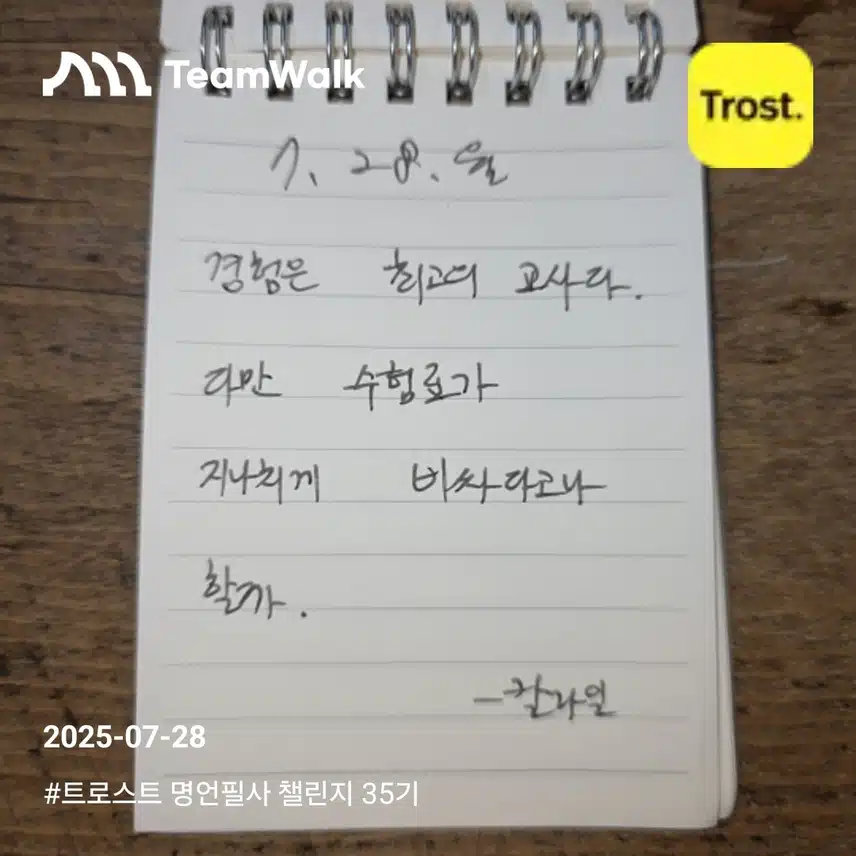 TeamWalk
Trost.
7. 28. 월
경험은 최고의 교사다.
다만 수험료가
지나치게 비싸다고나
할까.
-칼라일
2025-07-28
#트로스트 명언필사 챌린지 35기